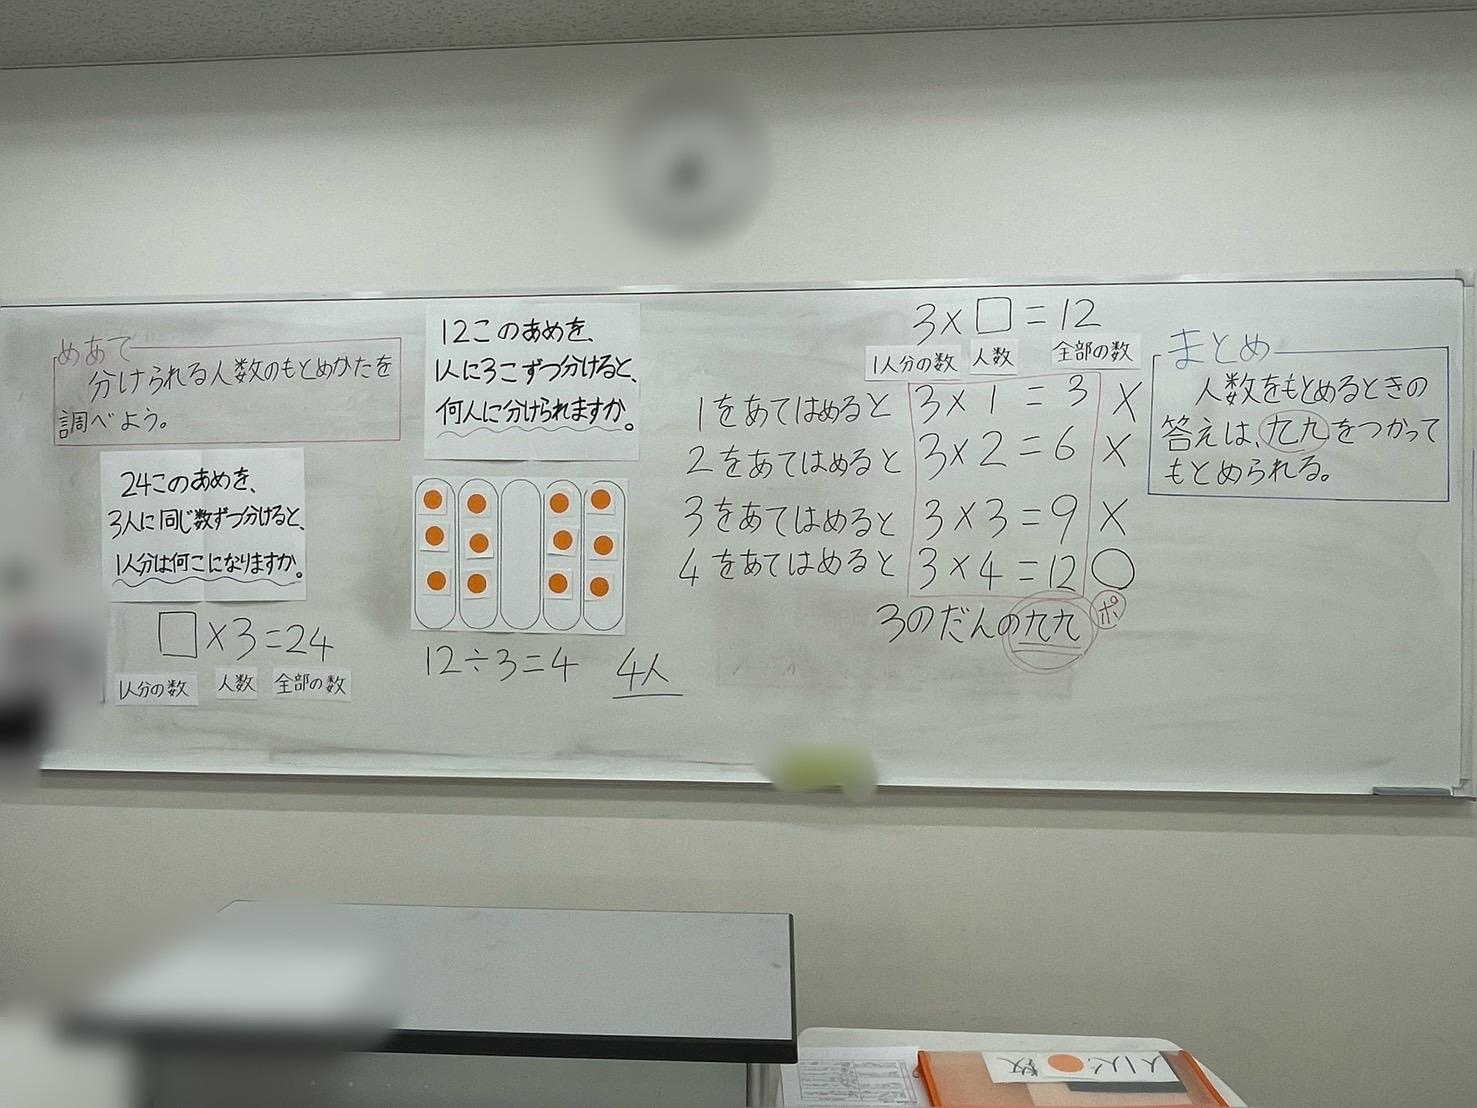 めあて
分けられる人数のもとめかたを
調べよう。
24このあめを、
3人に同じ数ずつ分けると、
1人分は何こになりますか。
□×3=24
1人分の数
人数
全部の数
12このあめを、
1人に3こずつ分けると、
何人に分けられますか。
12÷3=4 4人
3×□=12
1人分の数
人数
全部の数
1をあてはめると 3×1=3 ×
2をあてはめると 3×2=6 ×
3をあてはめると 3×3=9 ×
4をあてはめると 3×4=12 ○
3のだんの九九 ポ
まとめ
人数をもとめるときの
答えは、九九をつかって
もとめられる。